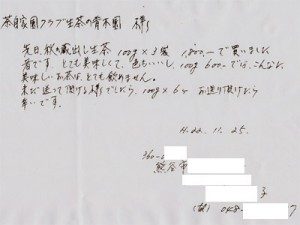 茶自家園クラブ生茶の青木園 様
先日、秋の蔵出し生茶 100g×3袋 1,800-で買いました
者です。とても美味しくて、色もいいし、100g 600-では、こんな
美味しいお茶は、とても飲めません。
まだ送って頂ける様でしたら、100g×6ヶ お送り頂けたら
幸いです。
H.22.11.25.
360-0
熊谷市
子
(電) 048- 7